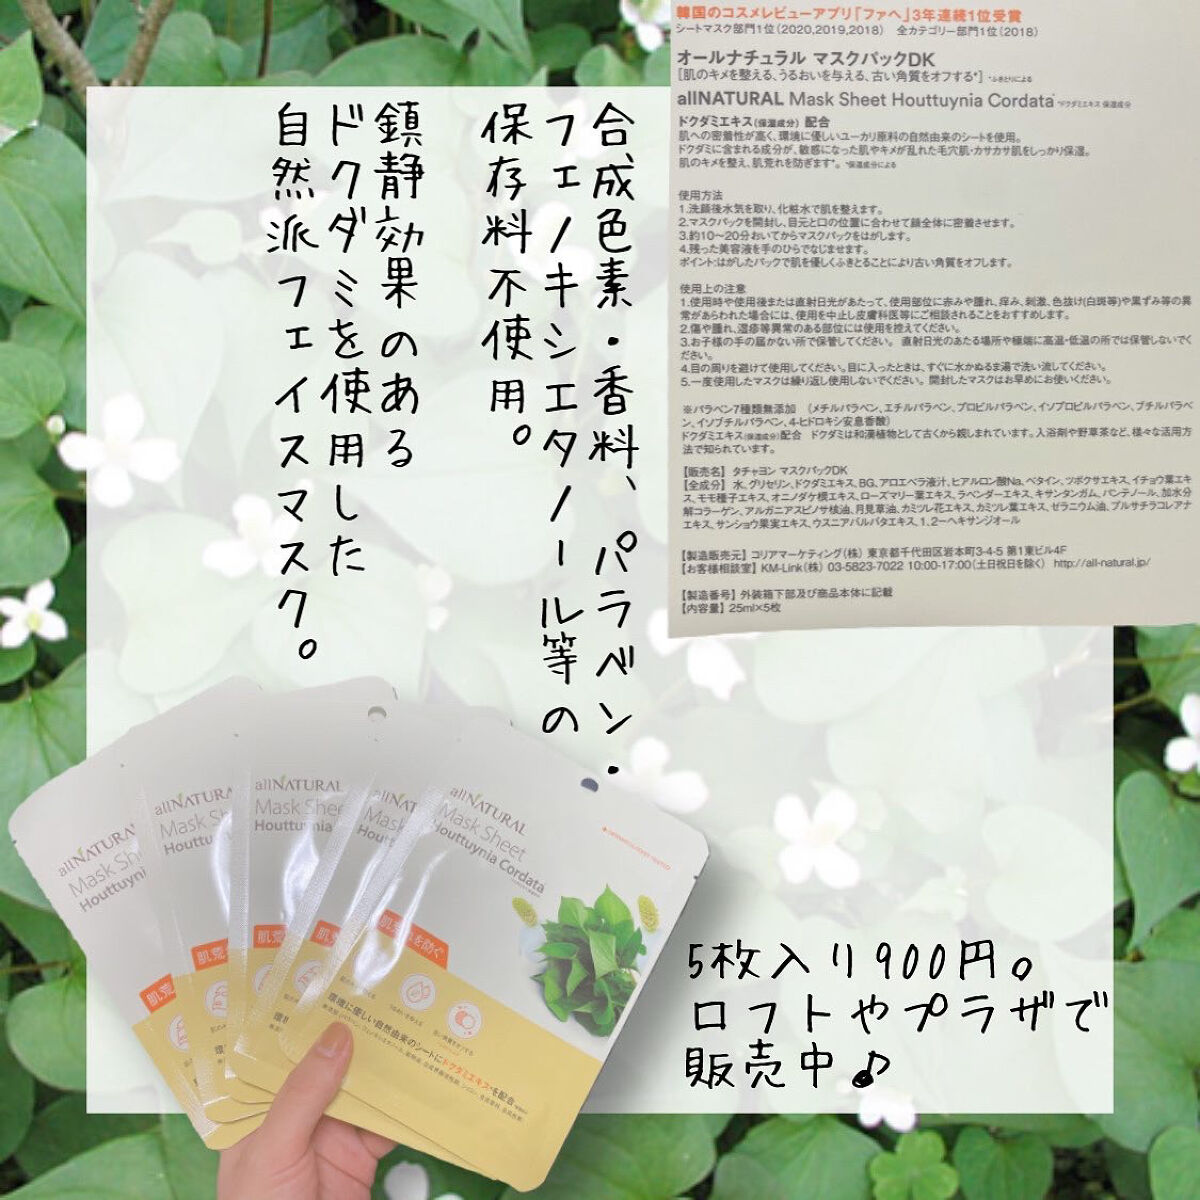 合成色素・香料、パラベン・
フェノキシエタノール等の
保存料不使用。
鎮静効果のある
ドクダミを使用した
自然派フェイスマスク。
韓国のコスメレビューアプリ「ファへ」3年連続1位受賞
シートマスク部門1位(2020,2019,2018) 全カテゴリー部門1位(2018)
オールナチュラル マスクパックDK
[肌のキメを整える、うるおいを与える、古い角質をオフする*] *ふきとりによる
allNATURAL Mask Sheet Houttuynia Cordata* *ドクダミエキス 保湿成分
ドクダミエキス(保湿成分) 配合
肌への密着性が高く、環境に優しいユーカリ原料の自然由来のシートを使用。
ドクダミに含まれる成分が、敏感になった肌やキメが乱れた毛穴肌・カサカサ肌をしっかり保湿。
肌のキメを整え、肌荒れを防ぎます*。 *保湿成分による
使用方法
1.洗顔後水気を取り、化粧水で肌を整えます。
2.マスクパックを開封し、目元と口の位置に合わせて顔全体に密着させます。
3.約10〜20分おいてからマスクパックをはがします。
4.残った美容液を手のひらでなじませます。
ポイント:はがしたパックで肌を優しくふきとることにより古い角質をオフします。
使用上の注意
1.使用時や使用後または直射日光があたって、使用部位に赤みや腫れ、痒み、刺激、色抜け(白斑等)や黒ずみ等の異
常があらわれた場合には、使用を中止し皮膚科医等にご相談されることをおすすめします。
2.傷や腫れ、湿疹等異常のある部位には使用を控えてください。
3.お子様の手の届かない所で保管してください。 直射日光のあたる場所や極端に高温・低温の所では保管しないでく
ださい。
4.目の周りを避けて使用してください。目に入ったときは、すぐに水かぬるま湯で洗い流してください。
5.一度使用したマスクは繰り返し使用しないでください。 開封したマスクはお早めにお使いください。
※パラベン7種類無添加 (メチルパラベン、エチルパラベン、プロピルパラベン、イソプロピルパラベン、ブチルパラベ
ン、イソブチルパラベン、4-ヒドロキシ安息香酸)
ドクダミエキス(保湿成分)配合 ドクダミは和漢植物として古くから親しまれています。入浴剤や野草茶など、様々な活用方
法で知られています。
【販売名】 タチャヨン マスクパックDK
【全成分】 水、グリセリン、ドクダミエキス、BG、アロエベラ液汁、ヒアルロン酸Na、ベタイン、ツボクサエキス、イチョウ葉エ
キス、モモ種子エキス、オニノダケ根エキス、ローズマリー葉エキス、ラベンダーエキス、キサンタンガム、パンテノール、加水分
解コラーゲン、アルガニアスピノサ核油、月見草油、カミツレ花エキス、カミツレ葉エキス、ゼラニウム油、プルサチラコレアナ
エキス、サンショウ果実エキス、ウスニアバルバタエキス、1,2-ヘキサンジオール
【製造販売元】 コリアマーケティング(株) 東京都千代田区岩本町3-4-5 第1東ビル4F
【お客様相談室】 KM-Link(株) 03-5823-7022 10:00-17:00(土日祝日を除く) http://all-natural.jp/
【製造番号】 外装箱下部及び商品本体に記載
【内容量】 25ml×5枚
allNATURAL
Mask Sheet
Houttuynia Cordata
肌荒れを防ぐ
うるおいを与える
環境に優しい自然由来のシートにドクダミエキス*を配合
5枚入り900円。
ロフトやプラザで
販売中♪